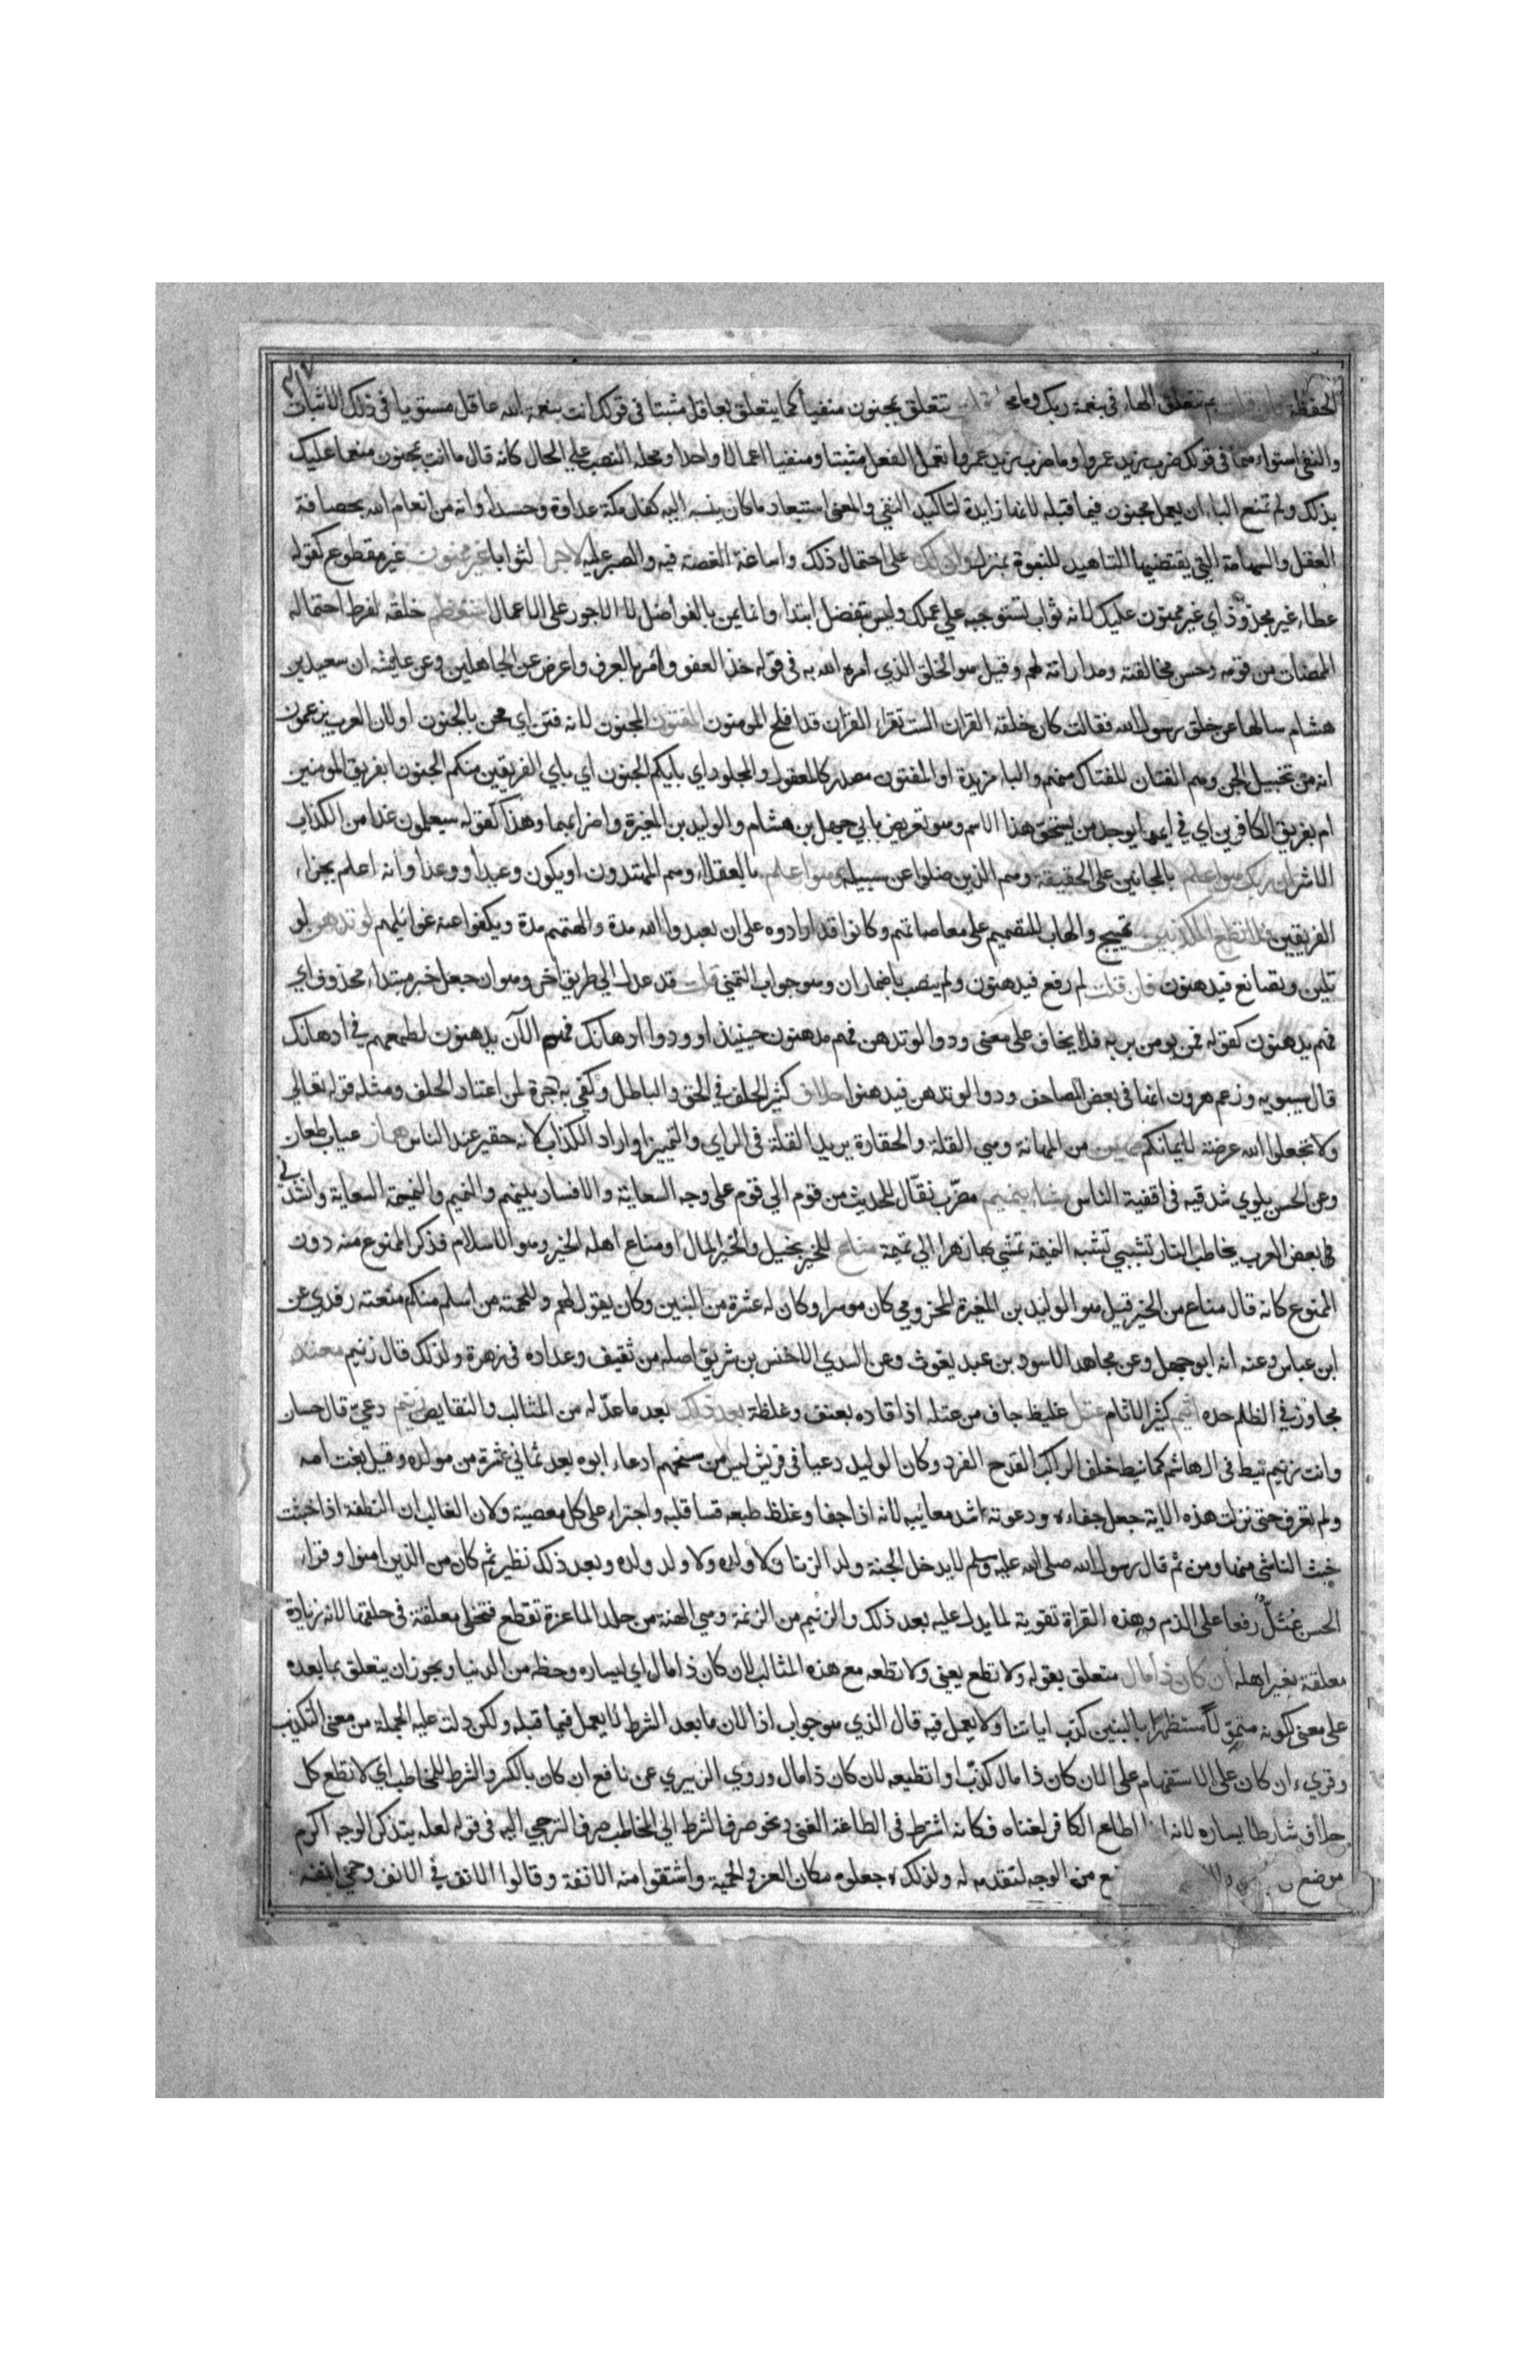 الحفظة بم تتعلق الباء في بنعمة ربك وما محله تتعلق بمجنون منفيا كما يتعلق بعاقل مثبتا في قولك انت بنعمة الله عاقل مستويا في ذلك الاثبات
والنفي استواءهما في قولك ضرب زيد عمروا وما ضرب زيد عمروا تعمل الفعل مثبتا ومنفيا اعمالا واحدا ومحله النصب علي الحال كانه قال ما انت بمجنون منعما عليك
بذلك ولم تمنع الباء ان يعمل مجنون فيما قبله لانها زايدة لتاكيد النفي والمعنى استبعاد ما كان ينسبه اليه كفار مكة عداوة وحسدا وانه من انعام الله بحصافة
العقل والشهامة التي يقتضيها التاهيل للنبوة بمنزلة وان لك على احتمال ذلك واساغة الغصة فيه والصبر عليه لاجرا لثوابا غير ممنون غير مقطوع كقوله
عطاء غير مجذوذ اي غير ممنون عليك لانه ثواب تستوجبه علي عملك وليس بتفضل ابتداء وانما يمن بالفواضل لا الاجور على الاعمال استعظم خلقه لفرط احتماله
الممضات من قومه وحسن مخالقته ومداراته لهم وقيل هو الخلق الذي امره الله به في قوله خذ العفو وامر بالعرف واعرض عن الجاهلين وعن عايشه ان سعيد بن
هشام سالها عن خلق رسول الله فقالت كان خلقه القران الست تقراء القران قد افلح المومنون المفتون المجنون لانه فتن اي محن بالجنون او لان العرب يزعمون
انه من تخبيل الجن وهم الفتان للفتاك منهم والباء مزيدة او المفتون مصدر كالمعقول والمجلود اي بايكم الجنون اي باي الفريقين منكم الجنون ابفريق المومنين
ام بفريق الكافرين اي في ايهما يوجد من يستحق هذا الاسم وهو تعريض بابي جهل بن هشام والوليد بن المغيرة واضرابهما وهذا كقوله سيعلمون غدا من الكذاب
الاشر ان ربك هو اعلم بالمجانين على الحقيقة وهم الذين ضلوا عن سبيله وهو اعلم بالعقلاء وهم المهتدون او يكون وعيدا ووعدا وانه اعلم بجزاء
الفريقين فلا تطع المكذبين تهييج والهاب للتصميم على معاصاتهم وكانوا قد ارادوه على ان يعبدوا الله مدة والهتهم مدة ويكفوا عنه غوايلهم لو تدهن لو
تلين وتصانع فيدهنون فان قلت لم رفع فيدهنون ولم ينصب باضمار ان وهو جواب التمني قلت قد عدل الي طريق اخر وهو ان جعل خبر مبتداء محذوف اي
فهم يدهنون كقوله فمن يومن بربه فلا يخاف على معنى ودوا لو تدهن فهم مدهنون حينيذ او ودوا ادهانك فهم الآن يدهنون لطمعهم في ادهانك
قال سيبويه وزعم هرون انها في بعض المصاحف ودوا لو تدهن فيدهنوا حلاف كثير الحلف في الحق والباطل وكفي به مزجرة لمن اعتاد الحلف ومثله قوله تعالي
ولا تجعلوا الله عرضة لايمانكم مهين من المهانة وهي القلة والحقارة يريد القلة في الراي والتمييز او اراد الكذاب لانه حقير عند الناس هماز عياب طعان
وعن الحسن يلوي شدقيه في اقفية الناس مشاء بنميم مضرب نقال للحديث من قوم الي قوم على وجه السعاية والافساد بينهم والنميم والنميمة السعاية وانشدني
بعض العرب يخاطب النار تشببي تشبب النميمة تمشي بها زهرا الي تميمة مناع للخير بخيل والخير المال او مناع اهله الخير وهو الاسلام فذكر الممنوع منه دون
الممنوع كانه قال مناع من الخير قيل هو الوليد بن المغيرة المخزومي كان موسرا وكان له عشرة من البنين وكان يقول لهم وللحمته من اسلم منكم منعته رفدي عن
ابن عباس وعنه انه ابو جهل وعن مجاهد الاسود بن عبد يغوث وعن السدي الاخنس بن شريق اصله من ثقيف وعداده في زهرة ولذلك قال زنيم معتد
مجاوز في الظلم حده اثيم كثير الاثام عتل غليظ جاف من عتله اذا قاده بعنف وغلظة بعد ذلك بعد ما عد له من المثالب والنقايص زنيم دعي قال حسان
وانت زنيم نيط في ال هاشم كما نيط خلف الراكب القدح الفرد وكان الوليد دعيا في قريش ليس من سنخهم ادعاء ابوه بعد ثماني عشرة من مولده وقيل بغت امه
ولم تعرف حتى نزلت هذه الاية جعل جفاءه ودعوته اشد معائبه لانه اذا جفا وغلظ طبعه قسا قلبه واجتراء على كل معصية ولان الغالب ان النطفة اذا خبثت
خبث الناشي منها ومن ثم قال رسول الله صلى الله عليه وسلم لا يدخل الجنة ولد الزنا ولا ولده ولا ولد ولده وبعد ذلك نظير ثم كان من الذين امنوا وقراء
الحسن عُتُلٌّ رفعا على الذم وهذه القراة تقوية لما يدل عليه بعد ذلك والزنيم من الزنمة وهي الهنة من جلد الماعزة تقطع فتخلى معلقة في حلقها لانه زيادة
معلقة بغير اهله ان كان ذا مال متعلق بقوله ولا تطع يعني ولا تطعه مع هذه المثالب لان كان ذا مال اي ليساره وحظه من الدنيا ويجوز ان يتعلق بما بعده
على معنى لكونه متمولا مستظهرا بالبنين كذب اياتنا ولا يعمل فيه قال الذي هو جواب اذا لان ما بعد الشرط لا يعمل فيما قبله ولكن دلت عليه الجملة من معنى التكذيب
وقريء ان كان على الاستفهام على الان كان ذا مال كذب او اتطيعه لان كان ذا مال وروي الزبيري عن نافع ان كان بالكسر والشرط للمخاطب اي لا تطع كل
حلاف شارطا يساره لانه اذا اطاع الكافر لغناه فكانه اشترط في الطاعة الغنى ونحو صرف الشرط الي المخاطب صرف الترجي اليه في قوله لعله يتذكر الوجه اكرم
موضع من الوجه لتقدمه له ولذلك جعلوه مكان العز والحمية واشتقوا منه الانفة وقالوا الانف في الانف وحمي انفه